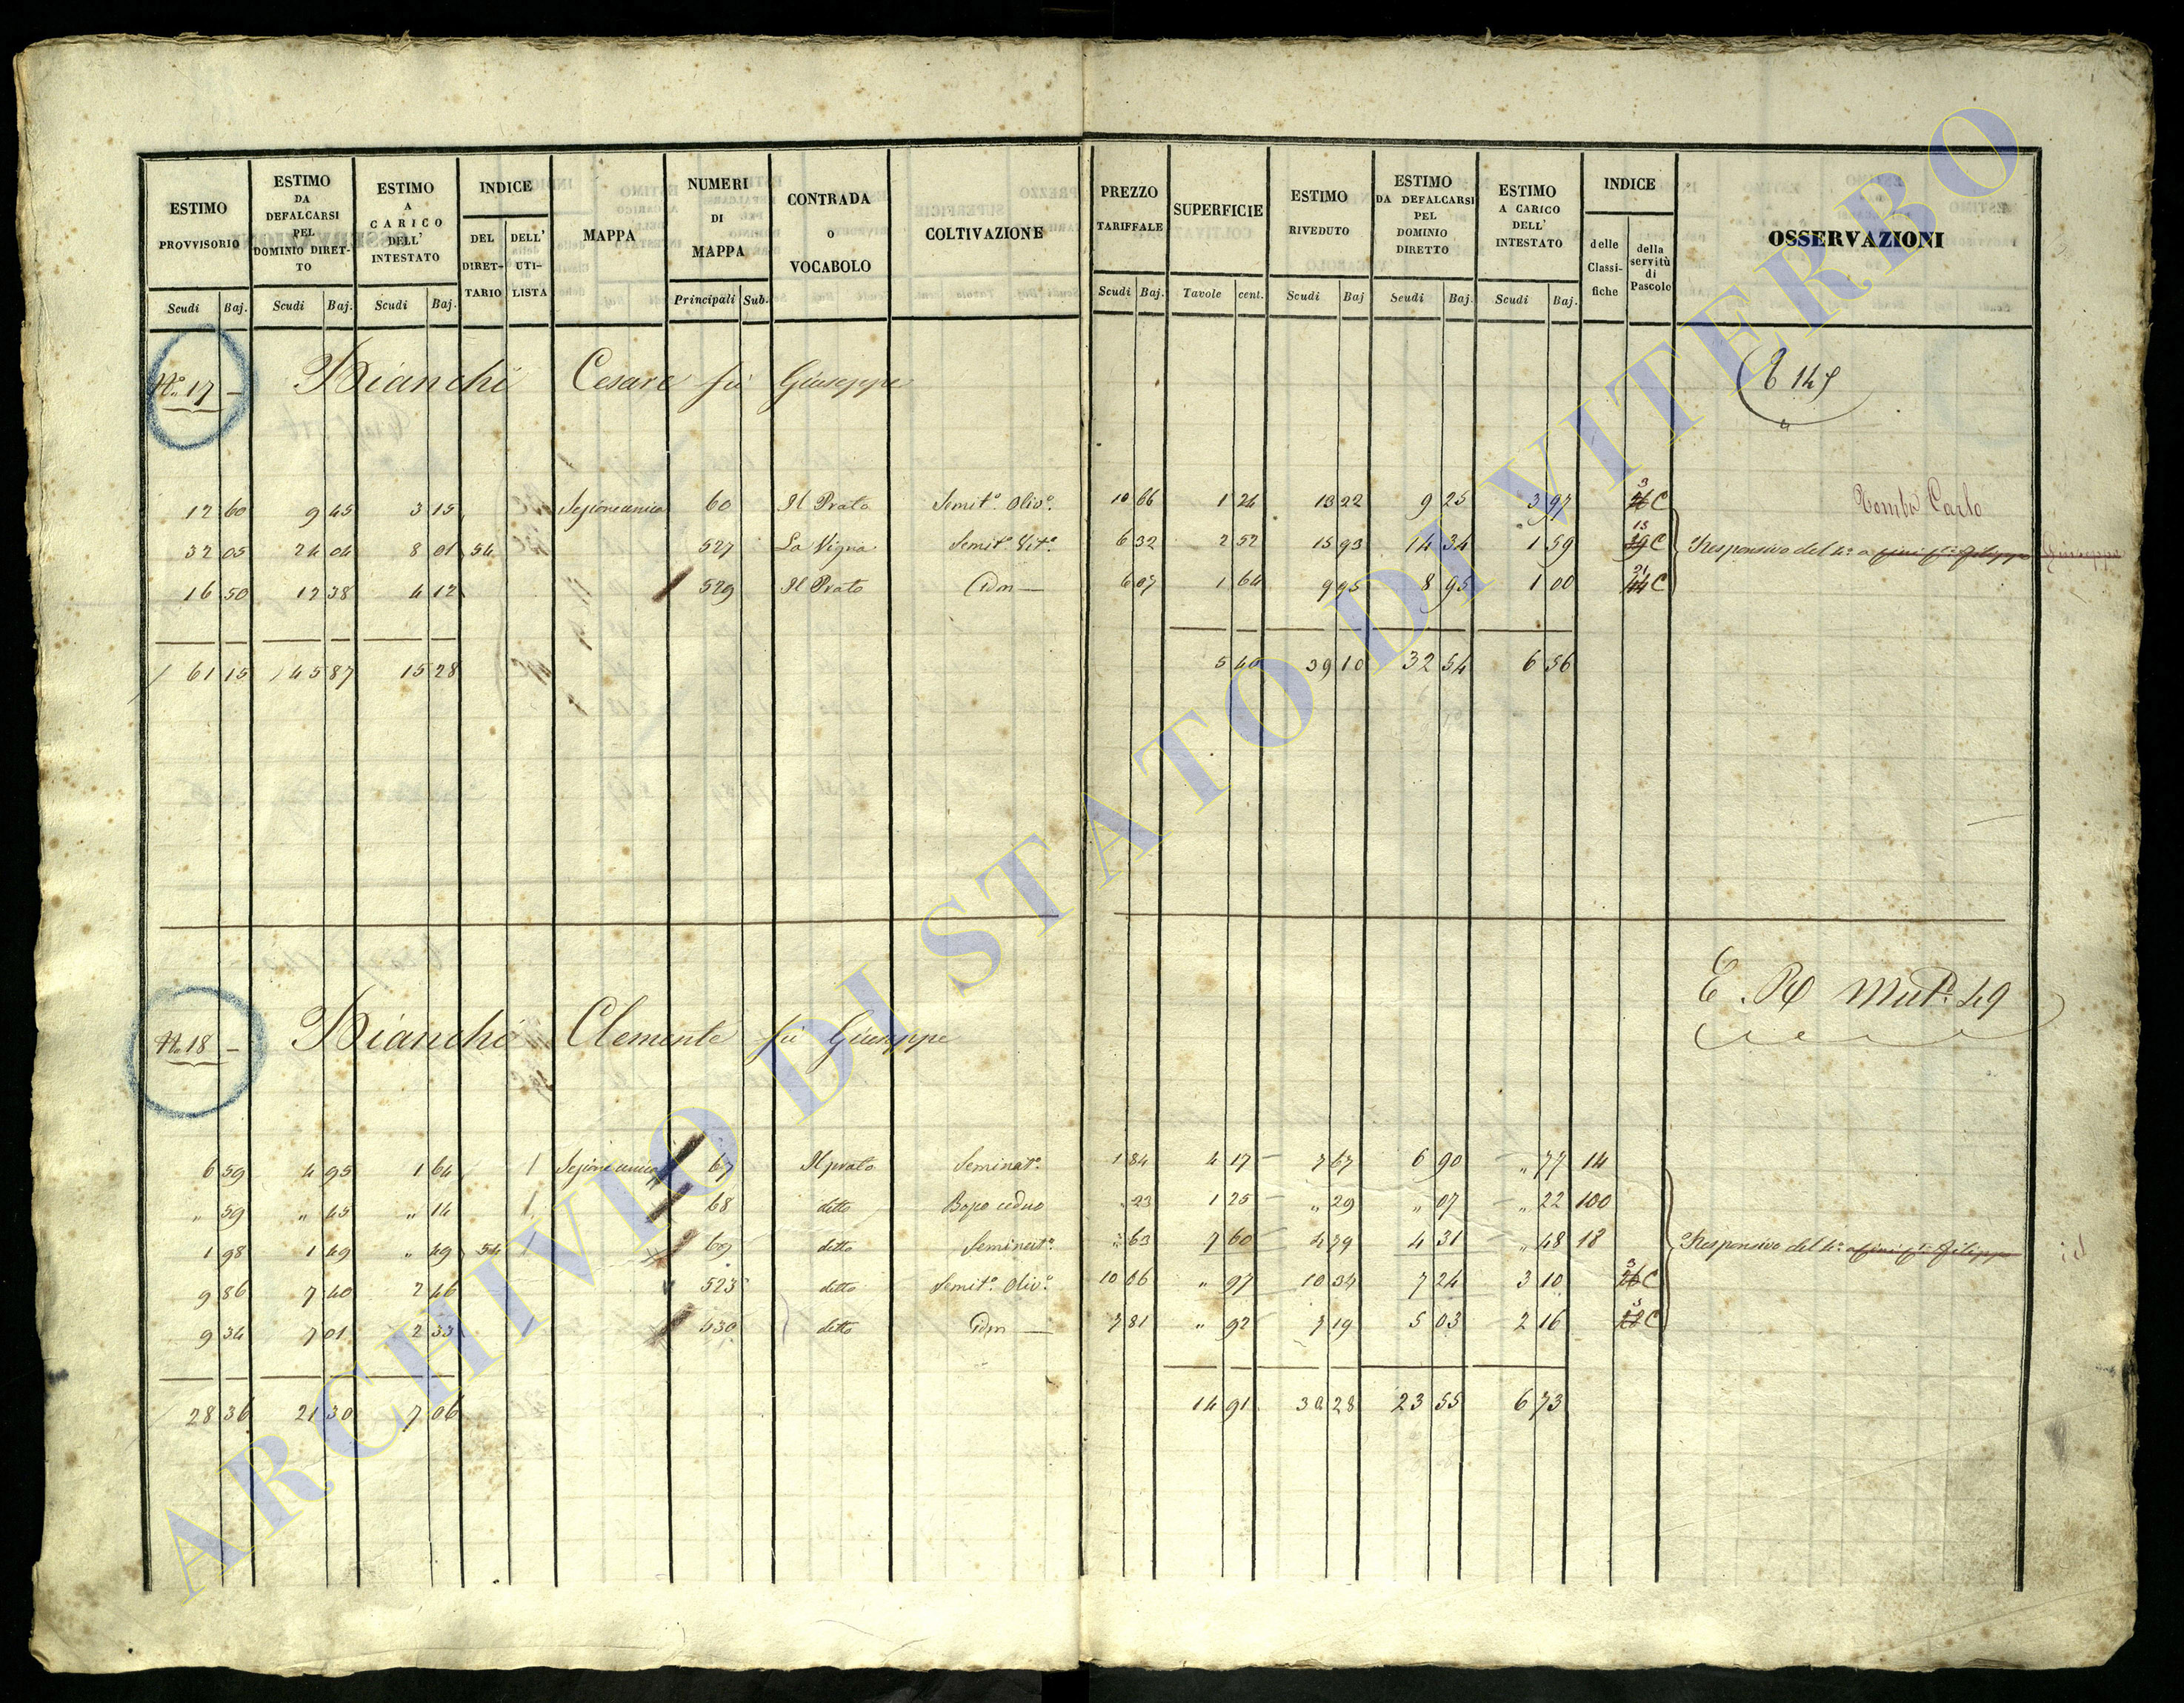 ESTIMO PROVVISORIO Scudi Baj.
ESTIMO DA DEFALCARSI PEL DOMINIO DIRETTO Scudi Baj.
ESTIMO A CARICO DELL' INTESTATO Scudi Baj.
INDICE DEL DIRETTARIO DELL' UTILISTA
MAPPA
NUMERI DI MAPPA Principali Sub.
CONTRADA o VOCABOLO
COLTIVAZIONE
PREZZO TARIFFALE Scudi Baj.
SUPERFICIE Tavole cent.
ESTIMO RIVEDUTO Scudi Baj
ESTIMO DA DEFALCARSI PEL DOMINIO DIRETTO Scudi Baj.
ESTIMO A CARICO DELL' INTESTATO Scudi Baj.
INDICE delle Classifiche della servitù di Pascolo
OSSERVAZIONI
No. 17 - Bianchi Cesare fu Giuseppe
12 60 9 45 3 15 Sezione unica 60 Il Prato Semit.o Oliv.o 10 66 1 24 13 22 9 25 3 97 3 C Carlo
32 05 24 04 8 01 54 527 La Vigna Semit.o Vit.o 6 32 2 52 15 93 14 34 1 59 C Responsivo del 4.o a
16 50 12 38 4 12 529 Il Prato Idm — 6 07 1 64 9 95 8 95 1 00 C
61 15 45 87 15 28 5 40 39 10 32 54 6 56
E. Mut. 49
No. 18 - Bianchi Clemente fu Giuseppe
6 59 4 95 1 64 1 Sezione unica 67 Il prato Seminat.o 1 84 4 17 7 67 6 90 „ 77 14
„ 59 „ 45 „ 14 1 68 detto Bosco ceduo „ 23 1 25 „ 29 „ 07 „ 22 100
1 98 1 49 „ 49 54 1 69 detto Seminat.o „ 63 7 60 4 79 4 31 „ 48 18 Responsivo del 4.o
9 86 7 40 2 46 523 detto Semit.o Oliv.o 10 66 „ 97 10 34 7 24 3 10 3 C
9 34 7 01 2 33 530 detto Idm — 7 81 „ 92 7 19 5 03 2 16 C
28 36 21 30 7 06 14 91 30 28 23 55 6 73
ARCHIVIO DI STATO DI VITERBO